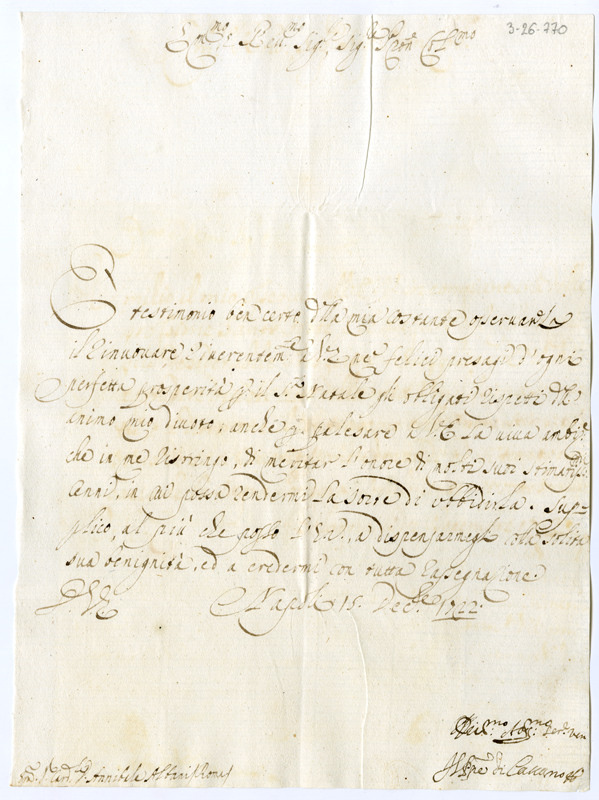 3-26-770
Em.mo e Rev.mo Sig.re Sig.re Pron Col.mo
È testimonio ben certo d'lla mia costante osservanza
il rinuovare riverentem.te a V.E. ne' felici presagi d'ogni
perfetta prosperità p. il S.to Natale gli obbligati rispetti d'll'
animo mio divoto, anche p. palesare a V.E. la viva ambiz.e
che in me di meritar l'onore di molti suoi stimatiss.mi
cenni, in cui possa rendermi la sorte di ubbidirla. Sup-
plico, al più che posso l'E.V., a dispensarmegli colla solita
sua benignità, ed a credermi con tutta rassegnazione
Napoli 15. Dec.bre 1722.
di Cassano
Annibale Albani Roma